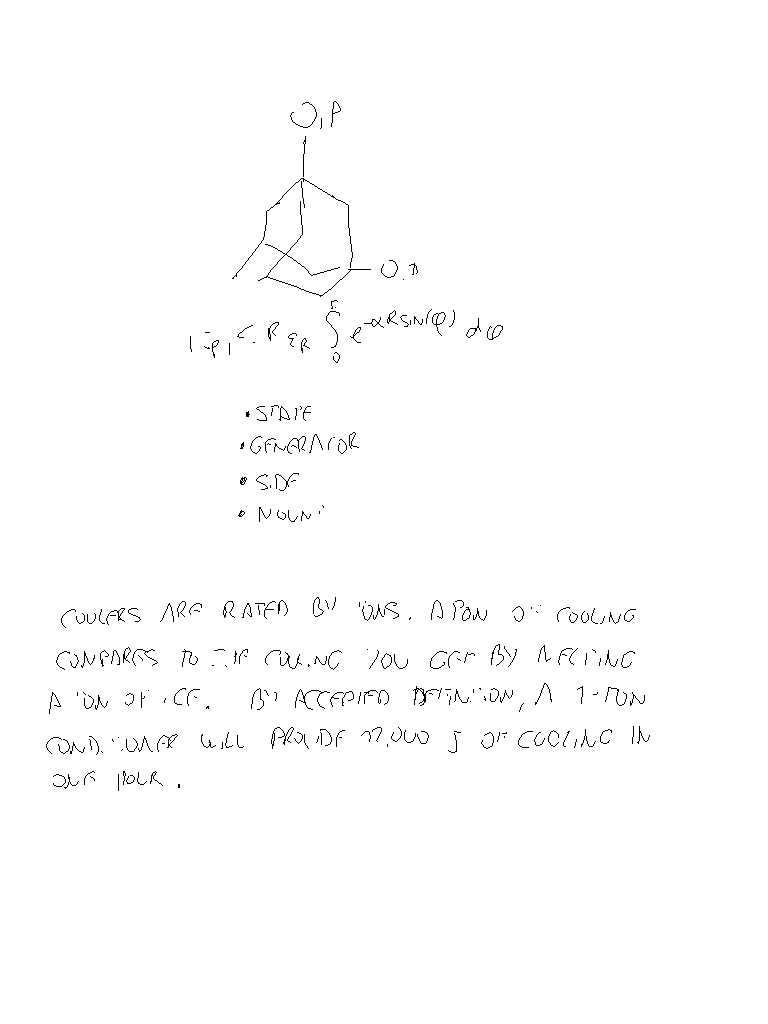 e^{-αR sin(φ)} dφ
• STATE
• GENERATOR
• SIDE
• MOUNT
COOLERS ARE RATED BY TONS. A TON OF COOLING
COMPARES TO THE COOLING YOU GET BY MELTING
A TON OF ICE. BY ACCEPTED DEFINITION, A 1-TON
CONDITIONER WILL PROVIDE OF COOLING IN
ONE HOUR.